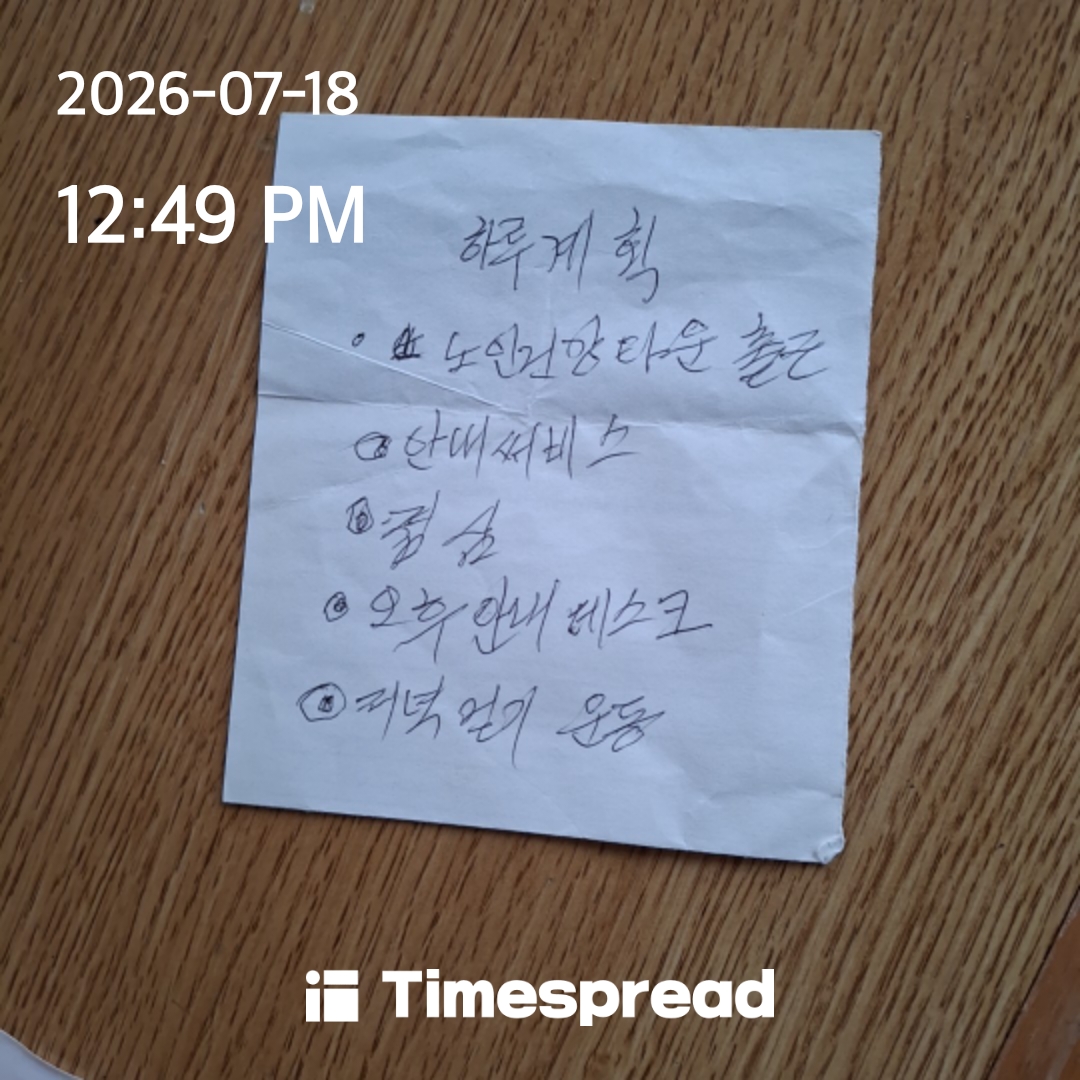 2026-07-18
12:49 PM
하루계획
노인건강타운 출근
안내써비스
점심
오후 안내 데스크
저녁 걷기 운동
Timespread